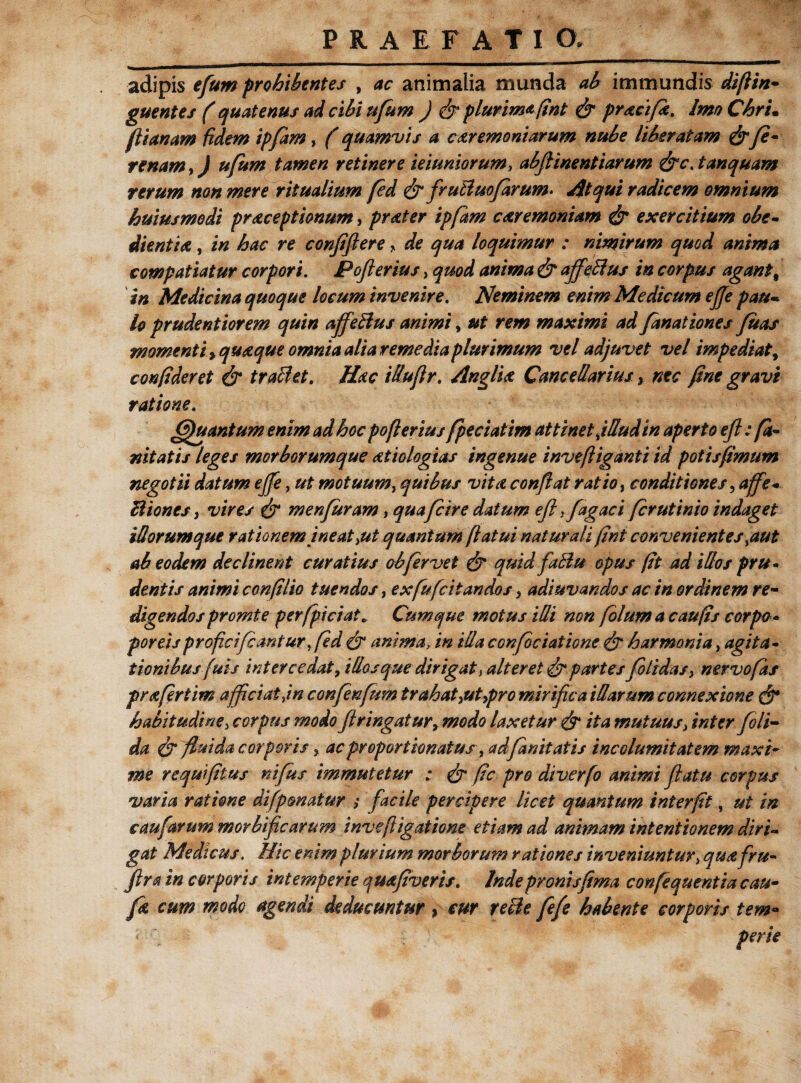 PRAEFATIO.
adipis eſum prohibentes , ac animalia munda ab immundis diſtin-
guentes ( quatenus ad cibi uſum ) & plurimæ ſint & præciſæ. Imo Chri-
ſtianam fidem ipſam , ( quamvis a cæremoniarum nube liberatam & ſe-
renam , ) uſum tamen retinere ieiuniorum, abſtinentiarum &c. tanquam
rerum non mere ritualium ſed & fructuoſarum. Atqui radicem omnium
huiusmodi præceptionum , præter ipſam cæremoniam & exercitium obe-
dientiæ , in hac re conſiſtere , de qua loquimur : nimirum quod anima
compatiatur corpori. Poſterius , quod anima & affectus in corpus agant,
in Medicina quoque locum invenire. Neminem enim Medicum eſſe pau-
lo prudentiorem quin affectus animi , ut rem maximi ad ſanationes ſuas
momenti , quæque omnia alia remedia plurimum vel adjuvet vel impediat,
conſideret & tractet. Hæc illuſtr. Angliæ Cancellarius , nec ſine gravi
ratione.
Quantum enim ad hoc poſterius ſpeciatim attinet ,illud in aperto eſt : ſa-
nitatis leges morborumque ætiologias ingenue inveſtiganti id potisſimum
negotii datum eſſe , ut motuum, quibus vitæ conſtat ratio , conditiones , affe-
ctiones , vires & menſuram , qua ſcire datum eſt , ſagaci ſcrutinio indaget
illorumque rationem ineat ,ut quantum ſtatui naturali ſint convenientes ,aut
ab eodem declinent curatius obſervet & quid factu opus ſit ad illos pru-
dentis animi conſilio tuendos , exſuſcitandos , adiuvandos ac in ordinem re-
digendos promte perſpiciat. Cumque motus illi non ſolum a cauſis corpo-
poreis proficiſcantur , ſed & anima, in illa conſociatione & harmonia , agita-
tionibus ſuis intercedat , illosque dirigat , alteret & partes ſolidas, nervoſas
præſertim afficiat ,in conſenſum trahat ,ut ,pro mirifica illarum connexione &
habitudine , corpus modo ſtringatur, modo laxetur & ita mutuus, inter ſoli-
da & fluida corporis , ac proportionatus , ad ſanitatis incolumitatem maxi-
me requiſitus niſus immutetur : & ſic pro diverſo animi ſtatu corpus
varia ratione diſponatur ; facile percipere licet quantum interſit , ut in
cauſarum morbificarum inveſtigatione etiam ad animam intentionem diri-
gat Medicus. Hic enim plurium morborum rationes inveniuntur, quæ fru-
ſtra in corporis intemperie quæſiveris. Inde pronisſima conſequentia cau-
ſæ cum modo agendi deducuntur , cur recte ſeſe habente corporis tem-
perie